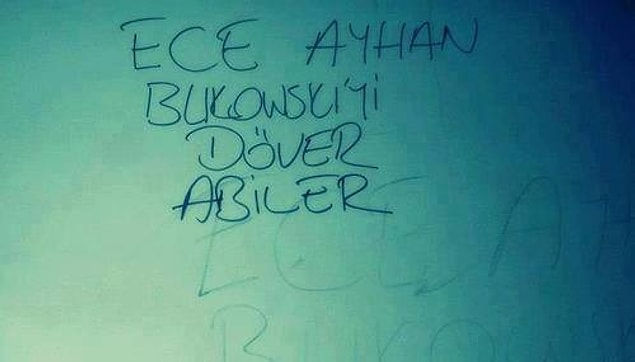 ECE AYHAN
BUKOWSKI'Yi
DÖVER
ABiLER
ECE AY
BUKOW